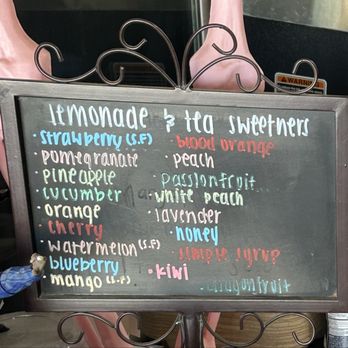 WARNING
lemonade & tea sweetners
· strawberry (s.f)
· pomegranate
· pineapple
· cucumber
· orange
· cherry
· watermelon (s.f)
· blueberry
· mango (s.f)
· blood orange
· peach
· passionfruit
· white peach
· lavender
· honey
· simple syrup
· kiwi
· dragonfruit